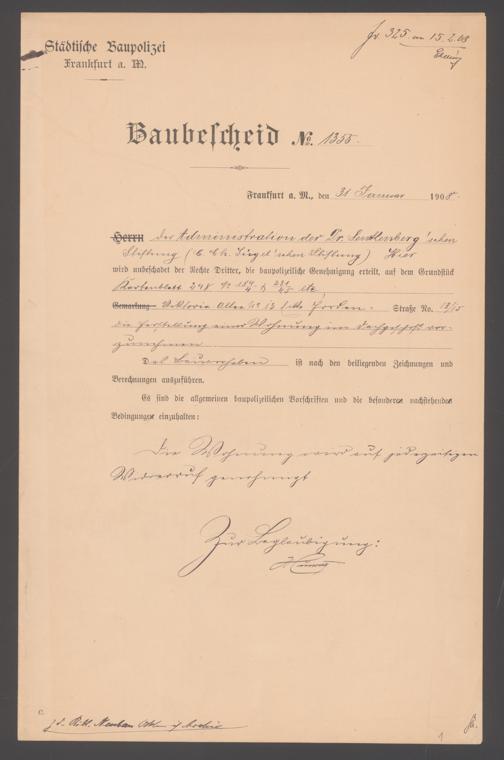 Städtische Baupolizei
Frankfurt a. M.
325 15.2.08
Baubescheid No. 1355.
Frankfurt a. M., den 31 Januar 1908.
Herrn der Administration der Dr. Senckenberg'schen
Stiftung ( Stiftung) Hier
wird unbeschadet der Rechte Dritter, die baupolizeiliche Genehmigung erteilt, auf dem Grundstück
Kartenblatt 248
Gemarkung Viktoria Allee No 13 Ecke Straße No. 13/15
die Herstellung einer Wohnung im Dachgeschoß vor-
zunehmen
Das Bauvorhaben ist nach den beiliegenden Zeichnungen und
Berechnungen auszuführen.
Es sind die allgemeinen baupolizeilichen Vorschriften und die besonderen nachstehenden
Bedingungen einzuhalten:
Die Wohnung wird auf jederzeitigen
Widerruf genehmigt
Zur Beglaubigung:
C.
Neubau
1